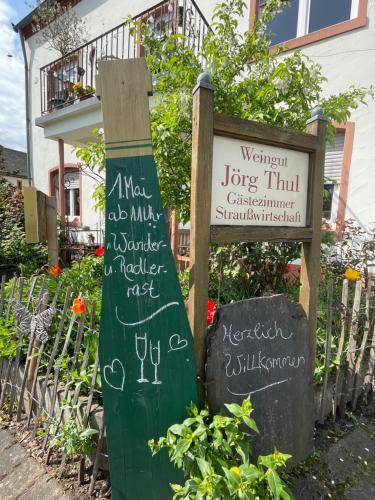 1. Mai
ab 11 Uhr
Wander-
u. Radler-
rast
Weingut
Jörg Thul
Gästezimmer
Straußwirtschaft
Herzlich
Willkommen